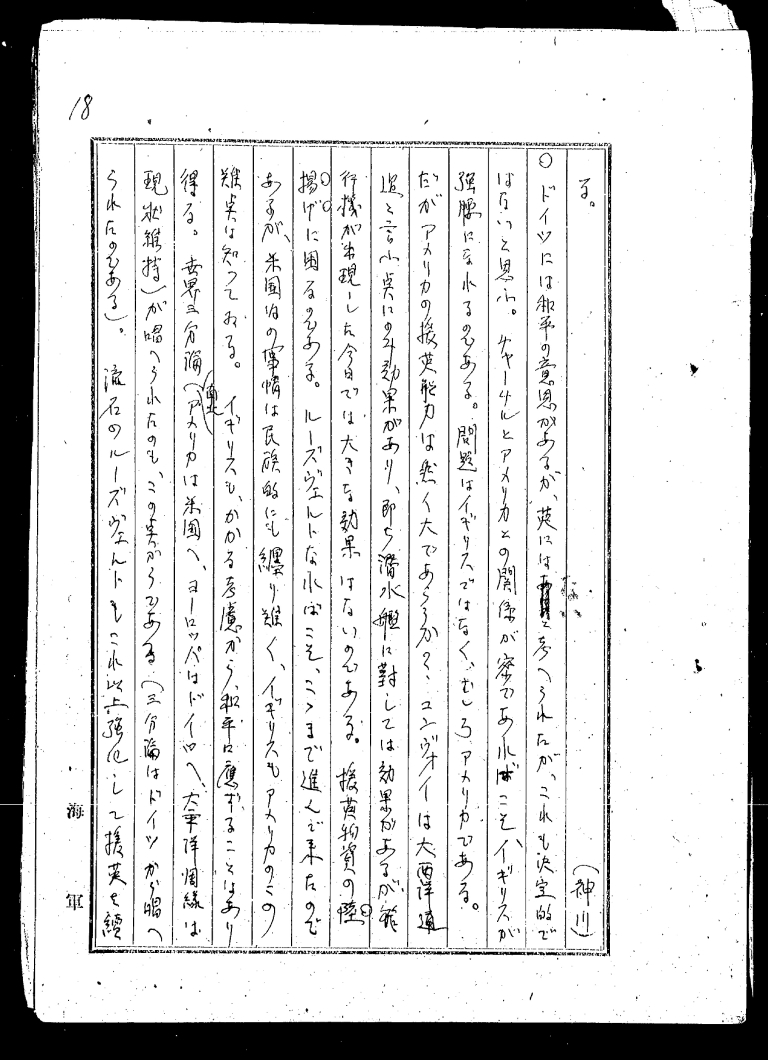 18
る。
(神川)
○ ドイツには和平の意思があるが、英には と考へられたが、これも決定的で
はないと思ふ。チャーチルとアメリカとの関係が密であればこそ、イギリスが
強腰になれるのである。問題はイギリスではなく、むしろアメリカである。
だがアメリカの援英能力は悪く大であらうか?、コンヴォイは大西洋通
過と言ふ点にのみ効果があり、即ち潜水艦に対しては効果があるが、飛
行機が出現した今日では大きな効果はないのである。援英物資の陸
揚げに困るのである。ルーズヴェルトなればこそ、こゝまで進んで来たので
あるが、米国内の事情は民族的にも纏り難く、イギリスもアメリカのこの
難点は知っておる。イギリスも、かかる考慮から、和平に應ずることはあり
得る。世界三分論(南北アメリカは米国へ、ヨーロッパはドイツへ、太平洋 は
現状維持)が唱へられたのも、この点からである(三分論はドイツから唱へ
られたのである)。流石のルーズヴェルトもこれ以上強化して援英を續
海軍